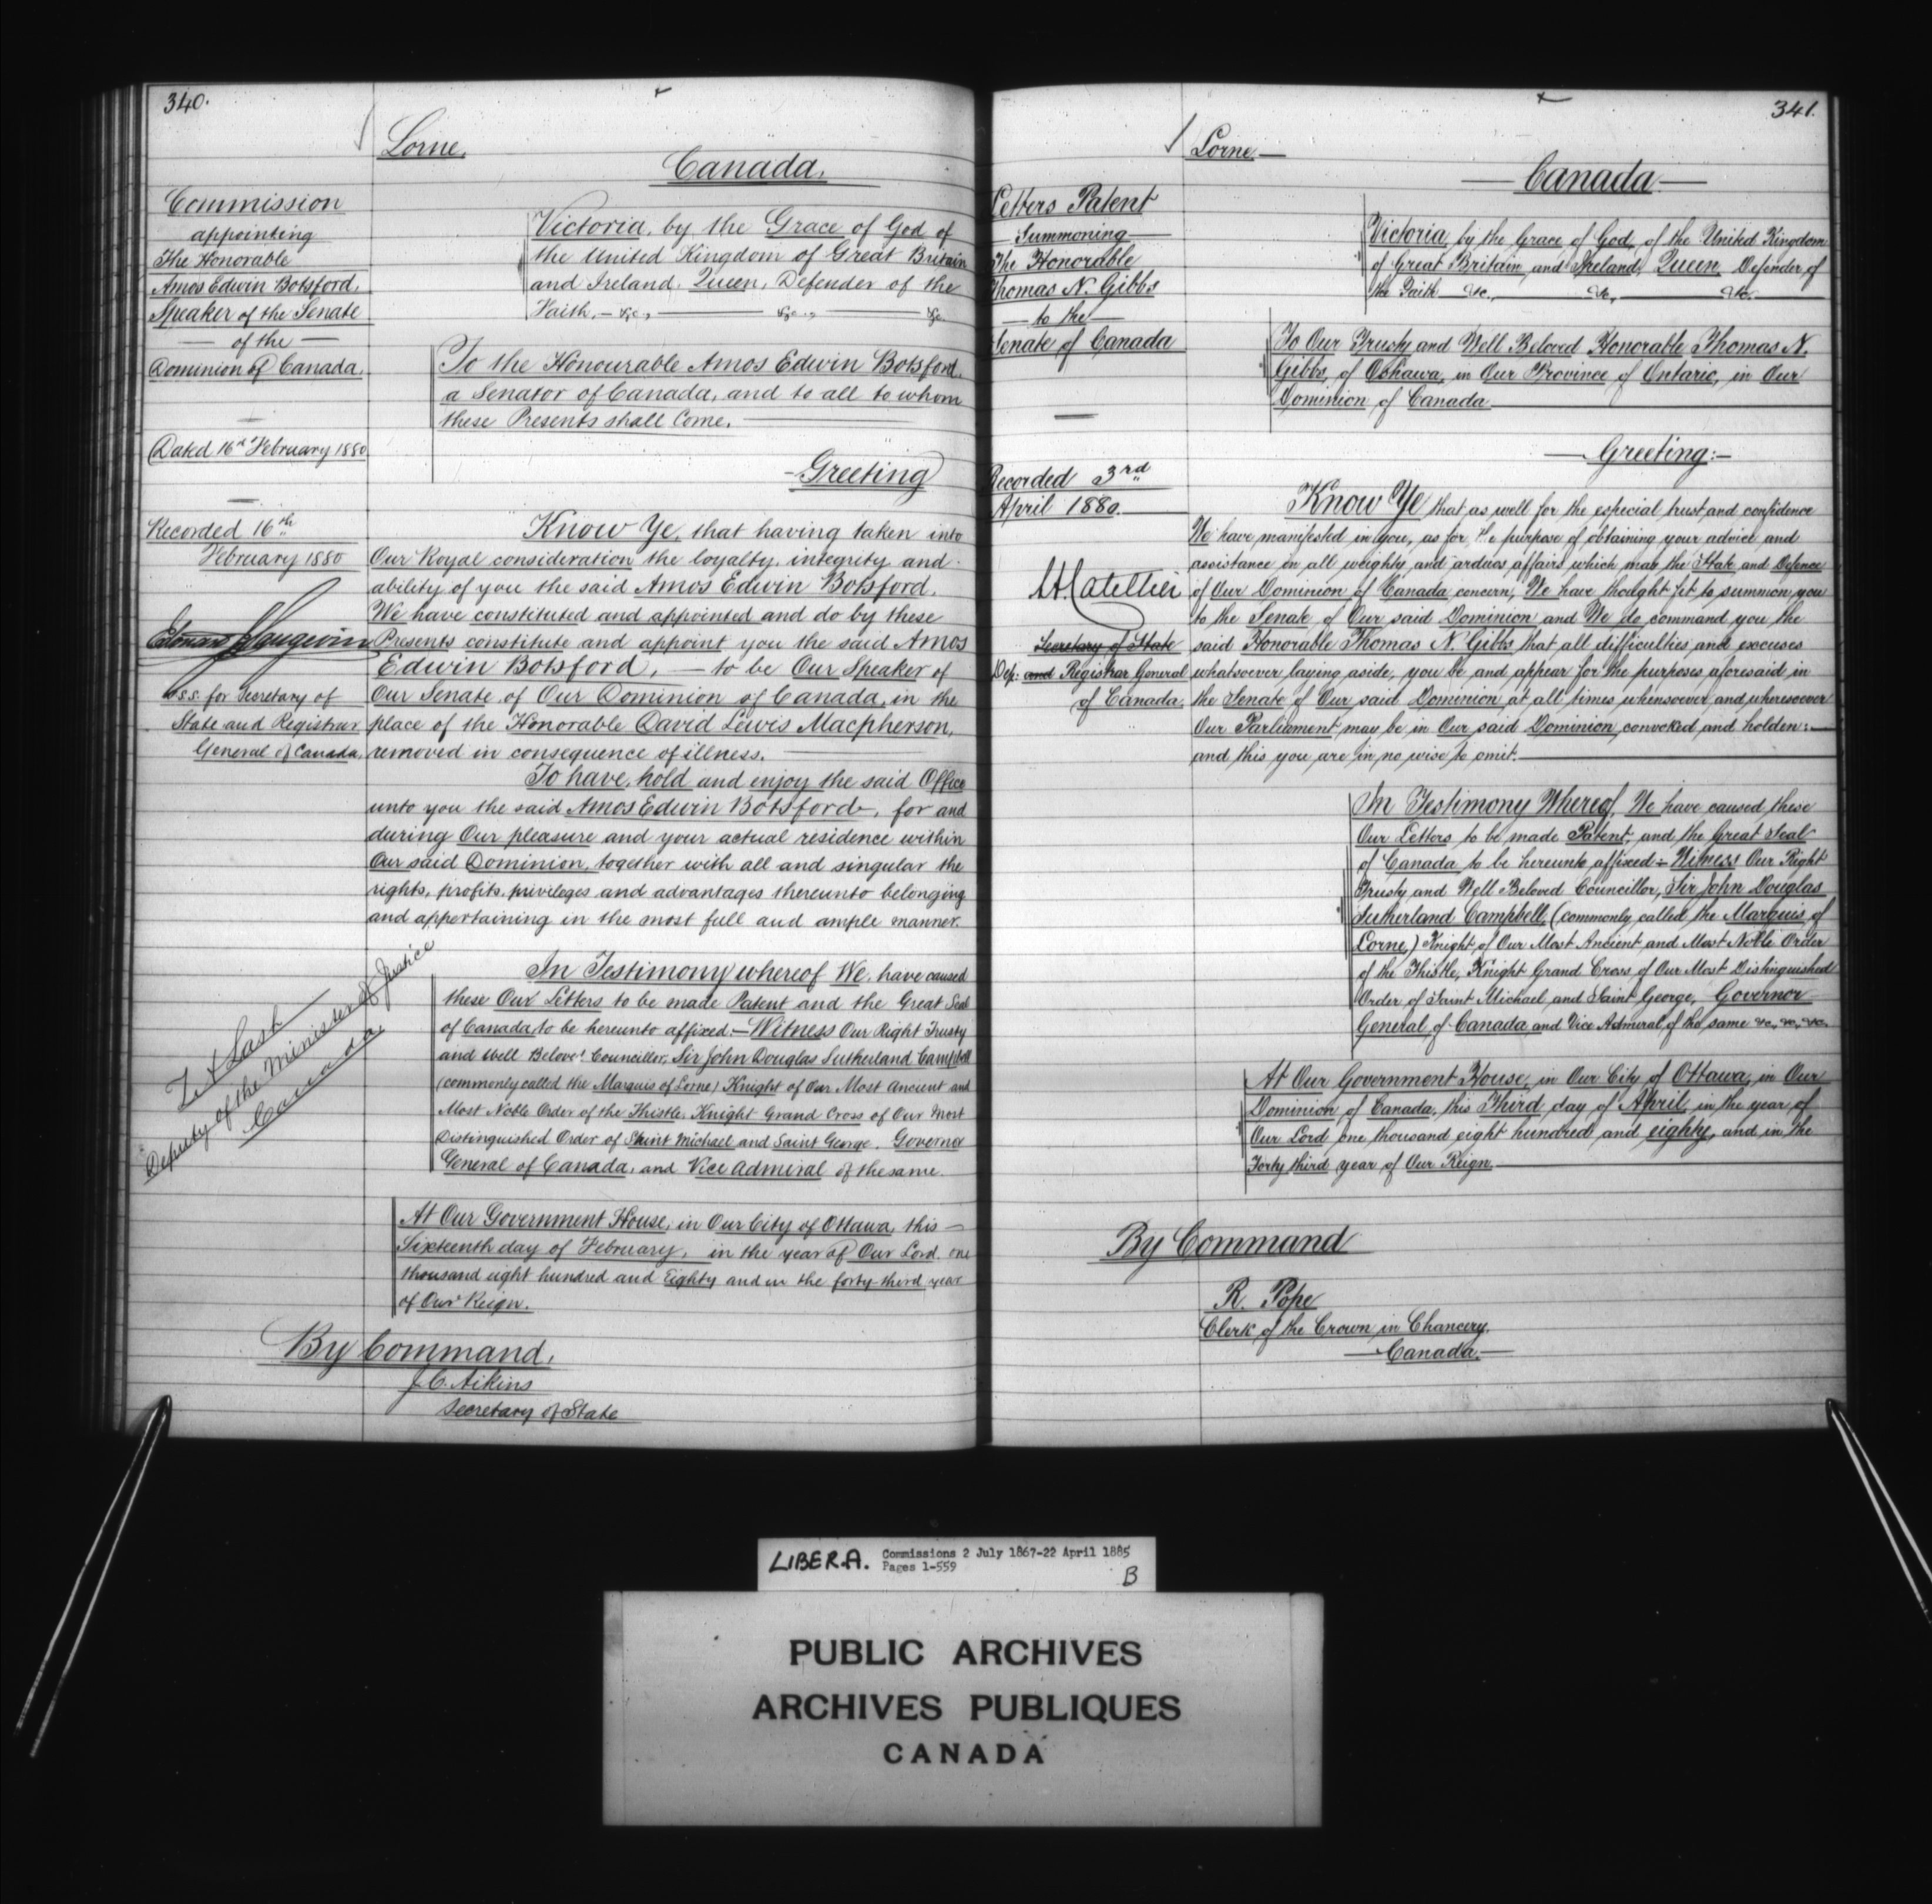 340.
Lorne.
Canada.
Commission
appointing
The Honorable
Amos Edwin Botsford,
Speaker of the Senate
— of the —
Dominion of Canada.
Dated 16th February 1880
Recorded 16th
February 1880
Edouard J Langevin
U.S.S. for Secretary of
State and Registrar
General of Canada.
Victoria, by the Grace of God of
the United Kingdom of Great Britain
and Ireland, Queen, Defender of the
Faith, — &c., — &c., — &c.
To the Honourable Amos Edwin Botsford,
a Senator of Canada, and to all to whom
these Presents shall Come.
Greeting
Know Ye, that having taken into
Our Royal consideration the loyalty, integrity and
ability of you the said Amos Edwin Botsford,
We have constituted and appointed and do by these
Presents constitute and appoint you the said Amos
Edwin Botsford, — to be Our Speaker of
Our Senate of Our Dominion of Canada, in the
place of the Honorable David Lewis Macpherson,
removed in consequence of illness.
To have, hold and enjoy the said Office
unto you the said Amos Edwin Botsford, for and
during Our pleasure and your actual residence within
Our said Dominion, together with all and singular the
rights, profits, privileges and advantages thereunto belonging
and appertaining in the most full and ample manner.
Z. A Lash
Deputy of the Minister of Justice
Canada.
In Testimony whereof We, have caused
these Our Letters to be made Patent and the Great Seal
of Canada to be hereunto affixed:— Witness Our Right Trusty
and Well Belovd Councillor, Sir John Douglas Sutherland Campbell
(commonly called the Marquis of Lorne) Knight of Our Most Ancient and
Most Noble Order of the Thistle, Knight Grand Cross of Our Most
Distinguished Order of Saint Michael and Saint George, Governor
General of Canada, and Vice Admiral of the same.
At Our Government House, in Our City of Ottawa, this —
Sixteenth day of February, in the year of Our Lord, one
thousand eight hundred and Eighty and in the forty-third year
of Our Reign.
By Command,
J.C. Aikins
Secretary of State
341.
Lorne.—
— Canada —
Letters Patent
— Summoning —
The Honorable
Thomas N. Gibbs
— to the —
Senate of Canada
Recorded 3rd
April 1880.
LHCatellier
Secretary of State
Dep: and Registrar General
of Canada.
Victoria by the Grace of God, of the United Kingdom
of Great Britain and Ireland, Queen, Defender of
the Faith &c, &c, &c.
To Our Trusty and Well Beloved Honorable Thomas N.
Gibbs, of Oshawa, in Our Province of Ontario, in Our
Dominion of Canada
— Greeting:—
Know Ye that as well for the especial trust and confidence
We have manifested in you, as for the purpose of obtaining your advice and
assistance in all weighty and arduos affairs which may the State and Defence
of Our Dominion of Canada concern, We have thought fit to summon you
to the Senate of Our said Dominion and We do command you the
said Honorable Thomas N. Gibbs that all difficulties and excuses
whatsoever laying aside, you be and appear for the purposes aforesaid in
the Senate of Our said Dominion at all times whensoever and wheresoever
Our Parliament may be in Our said Dominion convoked and holden:—
and this you are in no wise to omit.
In Testimony Whereof, We have caused these
Our Letters to be made Patent, and the Great Seal
of Canada to be hereunto affixed:— Witness Our Right
Trusty and Well Beloved Councillor, Sir John Douglas
Sutherland Campbell, (commonly called the Marquis of
Lorne,) Knight of Our Most Ancient and Most Noble Order
of the Thistle, Knight Grand Cross of Our Most Distinguished
Order of Saint Michael and Saint George, Governor
General of Canada and Vice Admiral of the same &c, &c, &c.
At Our Government House, in Our City of Ottawa, in Our
Dominion of Canada, this Third day of April, in the year of
Our Lord one thousand eight hundred and eighty, and in the
Forty third year of Our Reign.
By Command
R. Pope
Clerk of the Crown in Chancery.
— Canada. —
LIBER.A. Commissions 2 July 1867-22 April 1885
Pages 1-559
B
PUBLIC ARCHIVES
ARCHIVES PUBLIQUES
CANADA